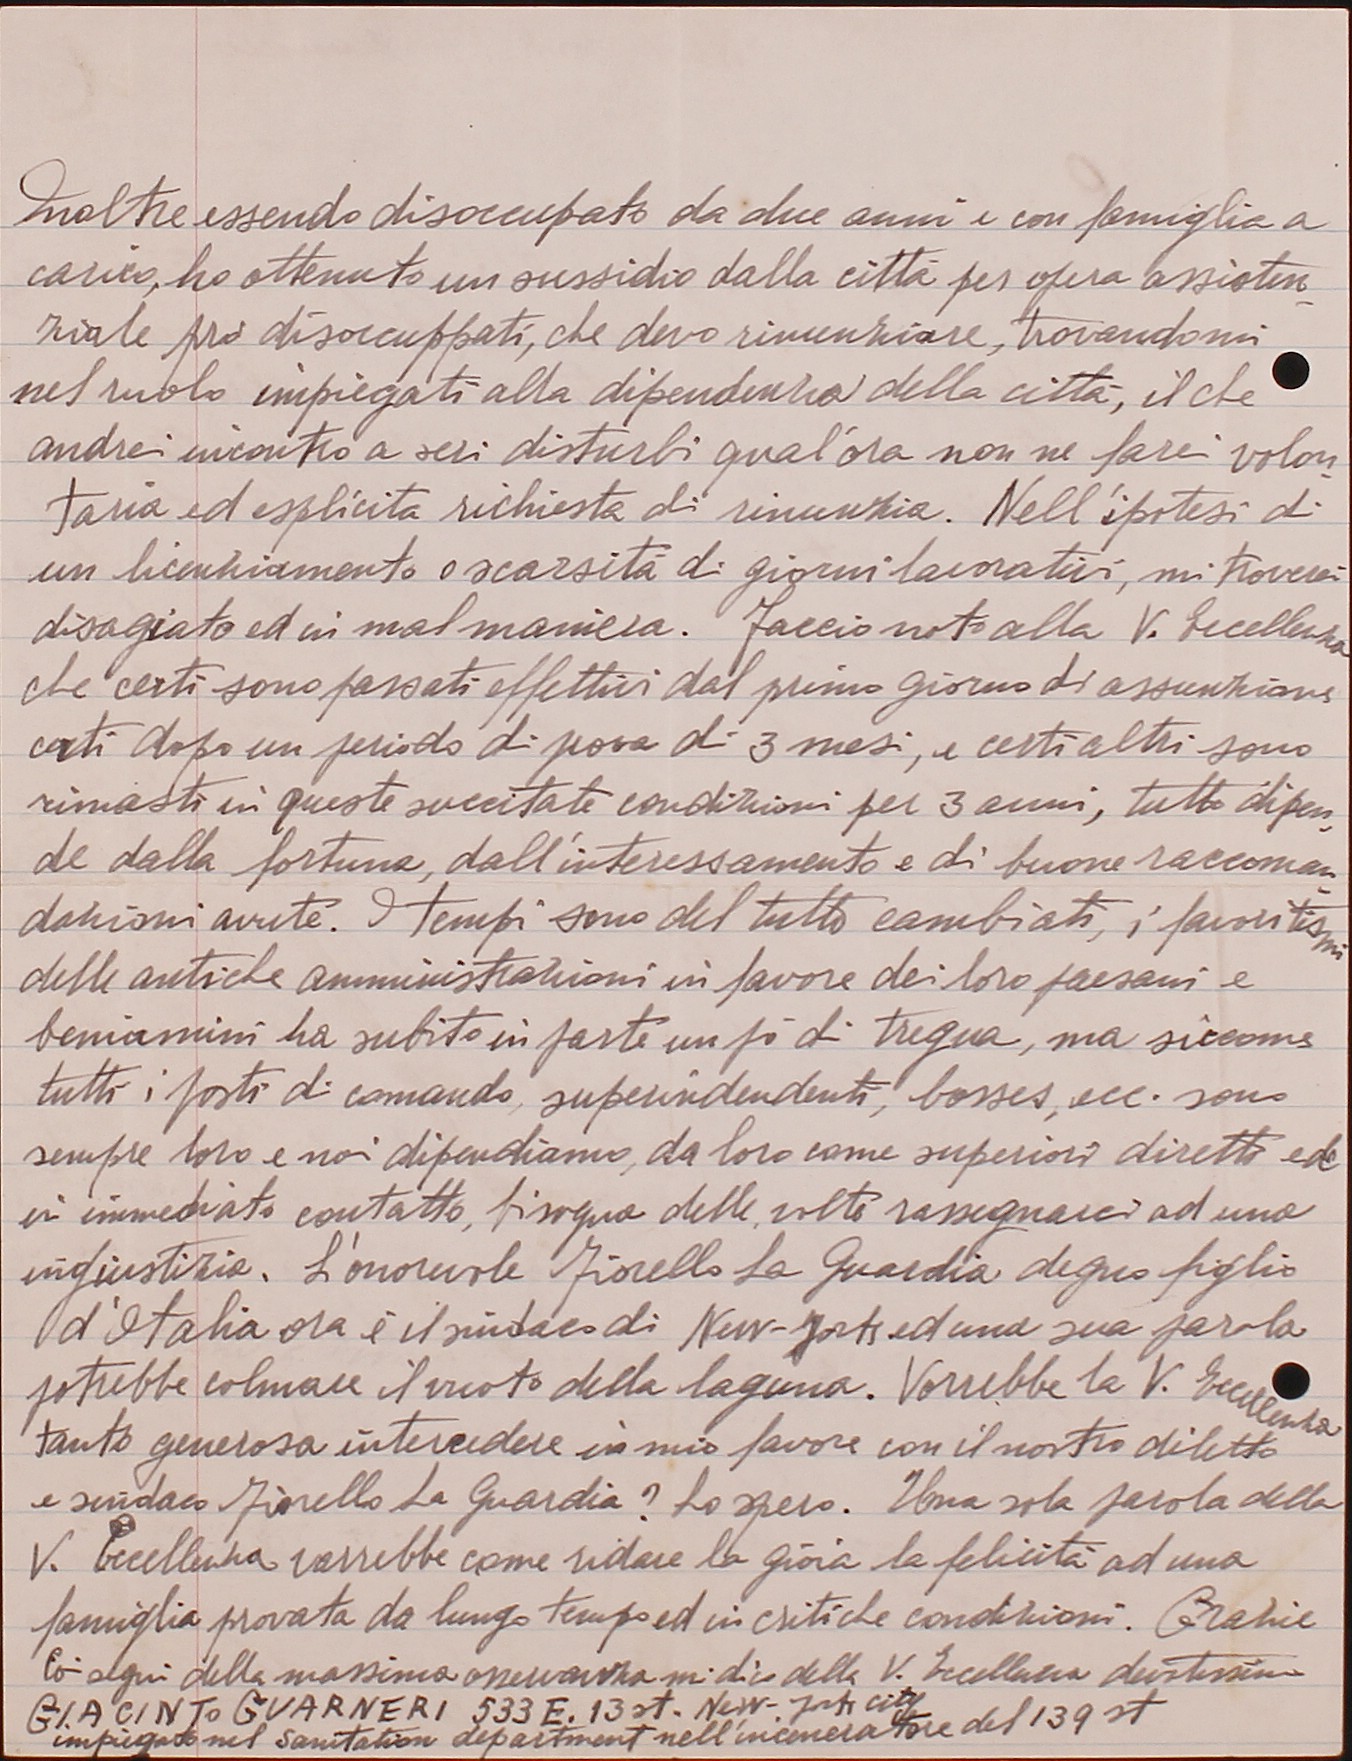 Inoltre essendo disoccupato da due anni e con famiglia a
carico, ho ottenuto un sussidio dalla città per opera assisten-
ziale prò disoccuppati, che devo rinunziare, trovandomi
nel ruolo impiegati alla dipendenza della città, il che
andrei incontro a seri disturbi qual'ora non ne farei volon-
taria ed esplicita richiesta di rinunzia. Nell'ipotesi di
un licenziamento o scarsità di giorni lavorativi, mi troverei
disagiato ed in mal maniera. Faccio noto alla V. Eccellenza
che certi sono passati effettivi dal primo giorno di assunzione
certi dopo un periodo di prova di 3 mesi, e certi altri sono
rimasti in queste succitate condizioni per 3 anni, tutto dipen-
de dalla fortuna, dall'interessamento e di buone raccoman-
dazioni avute. I tempi sono del tutto cambiati, i favoritismi
delle antiche amministrazioni in favore dei loro paesani e
beniamini ha subito in parte un pò di tregua, ma siccome
tutti i posti di comando, superindendenti, bosses, ecc. sono
sempre loro e noi dipendiamo, da loro come superiori diretti ed
in immediato contatto, bisogna delle volte rassegnarci ad una
ingiustizia. L'onorevole Fiorello La Guardia degno figlio
d'Italia ora è il sindaco di New-York ed una sua parola
potrebbe colmare il vuoto della laguna. Vorrebbe la V. Eccellenza
tanto generosa intercedere in mio favore con il nostro diletto
e sindaco Fiorello La Guardia? Lo spero. Una sola parola della
V. Eccellenza varrebbe come ridare la gioia la felicità ad una
famiglia provata da lungo tempo ed in critiche condizioni. Grazie
Coi segni della massima osservanza mi dico della V. Eccellenza devotissimo
GIACINTO GUARNERI 533 E. 13 st. New-York city
impiegato nel Sanitation department nell'inceneratore del 139 st